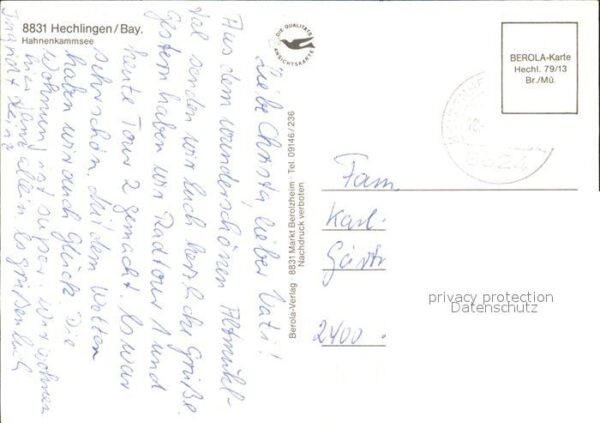 8831 Hechlingen/Bay.
Hahnenkammsee
DIE QUALITÄTS
ANSICHTSKARTE
BEROLA-Karte
Hechl. 79/13
Br./Mü.
Berola-Verlag 8831 Markt Berolzheim Tel. 09146/236
Nachdruck verboten
Liebe Christa, lieber Vati!
Aus dem wunderschönen Altmühl-
tal senden wir Euch herzliche Grüße.
Gestern haben wir Radtour 1 und
heute Tour 2 gemacht. Es war
sehr schön. Mit dem Wetter
haben wir auch Glück. Die
Wohnung ist super. Wir wohnen
hier ganz allein. Es grüßen Euch
Fam.
Karl
2400
privacy protection
Datenschutz